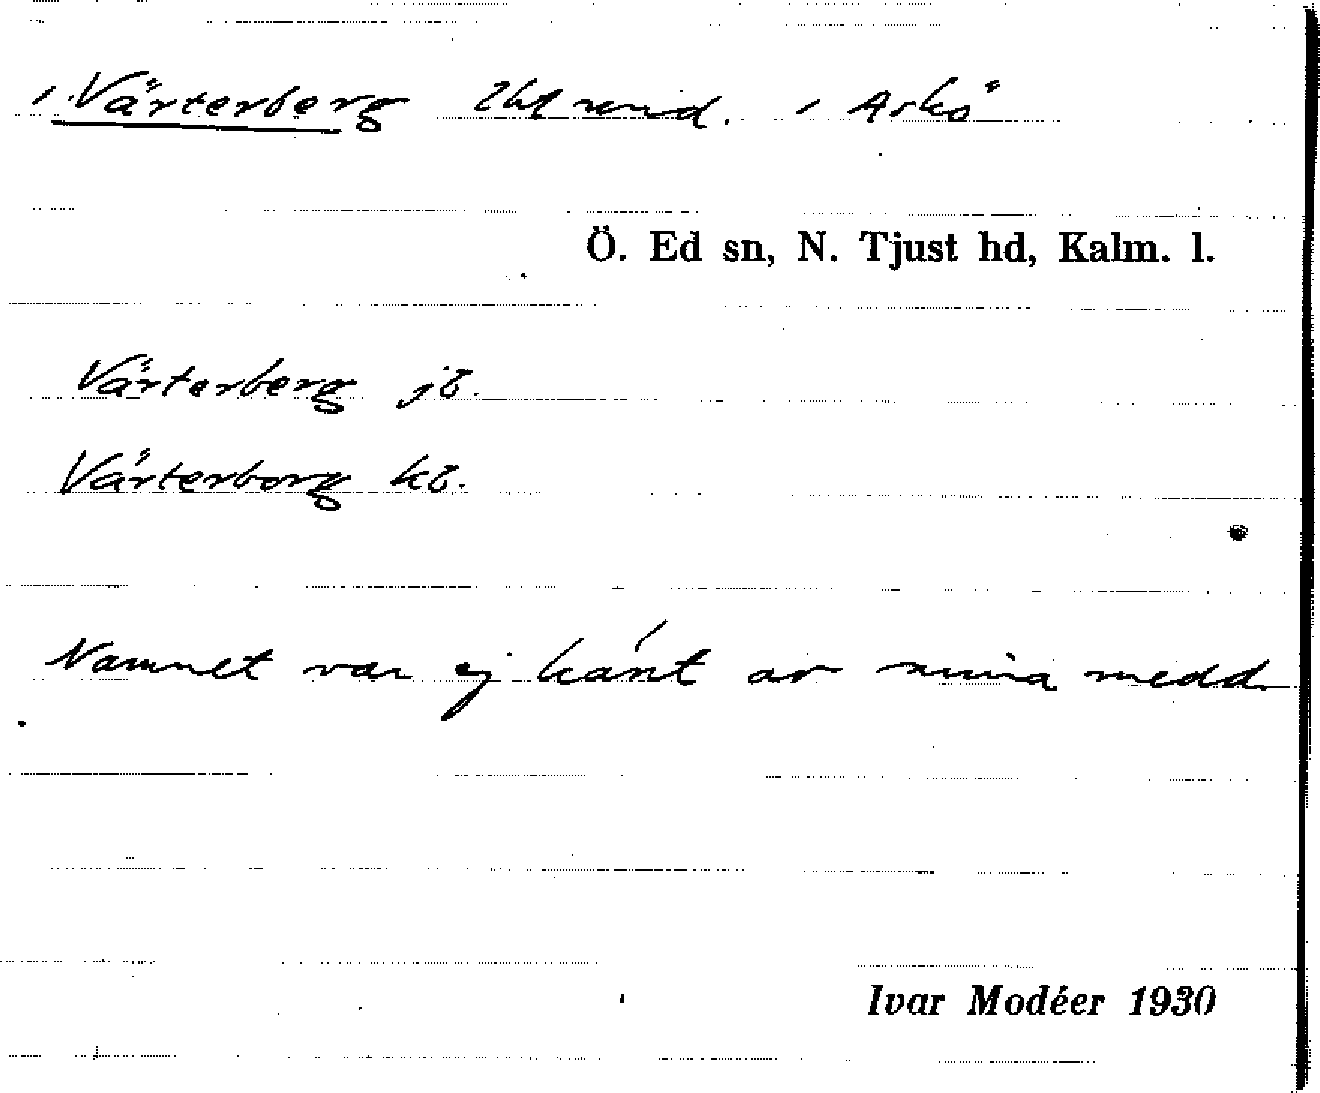 1. Värterberg und. i Askö
Ö. Ed sn, N. Tjust hd, Kalm. l.
Värterberg jb.
Värterborg kb.
Namnet var ej känt av mina medd.
Ivar Modéer 1930